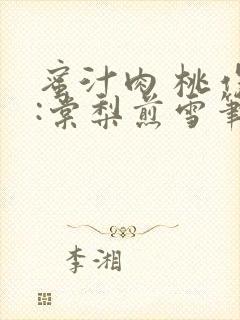 蜜汁肉桃
:棠梨煎雪
李湘